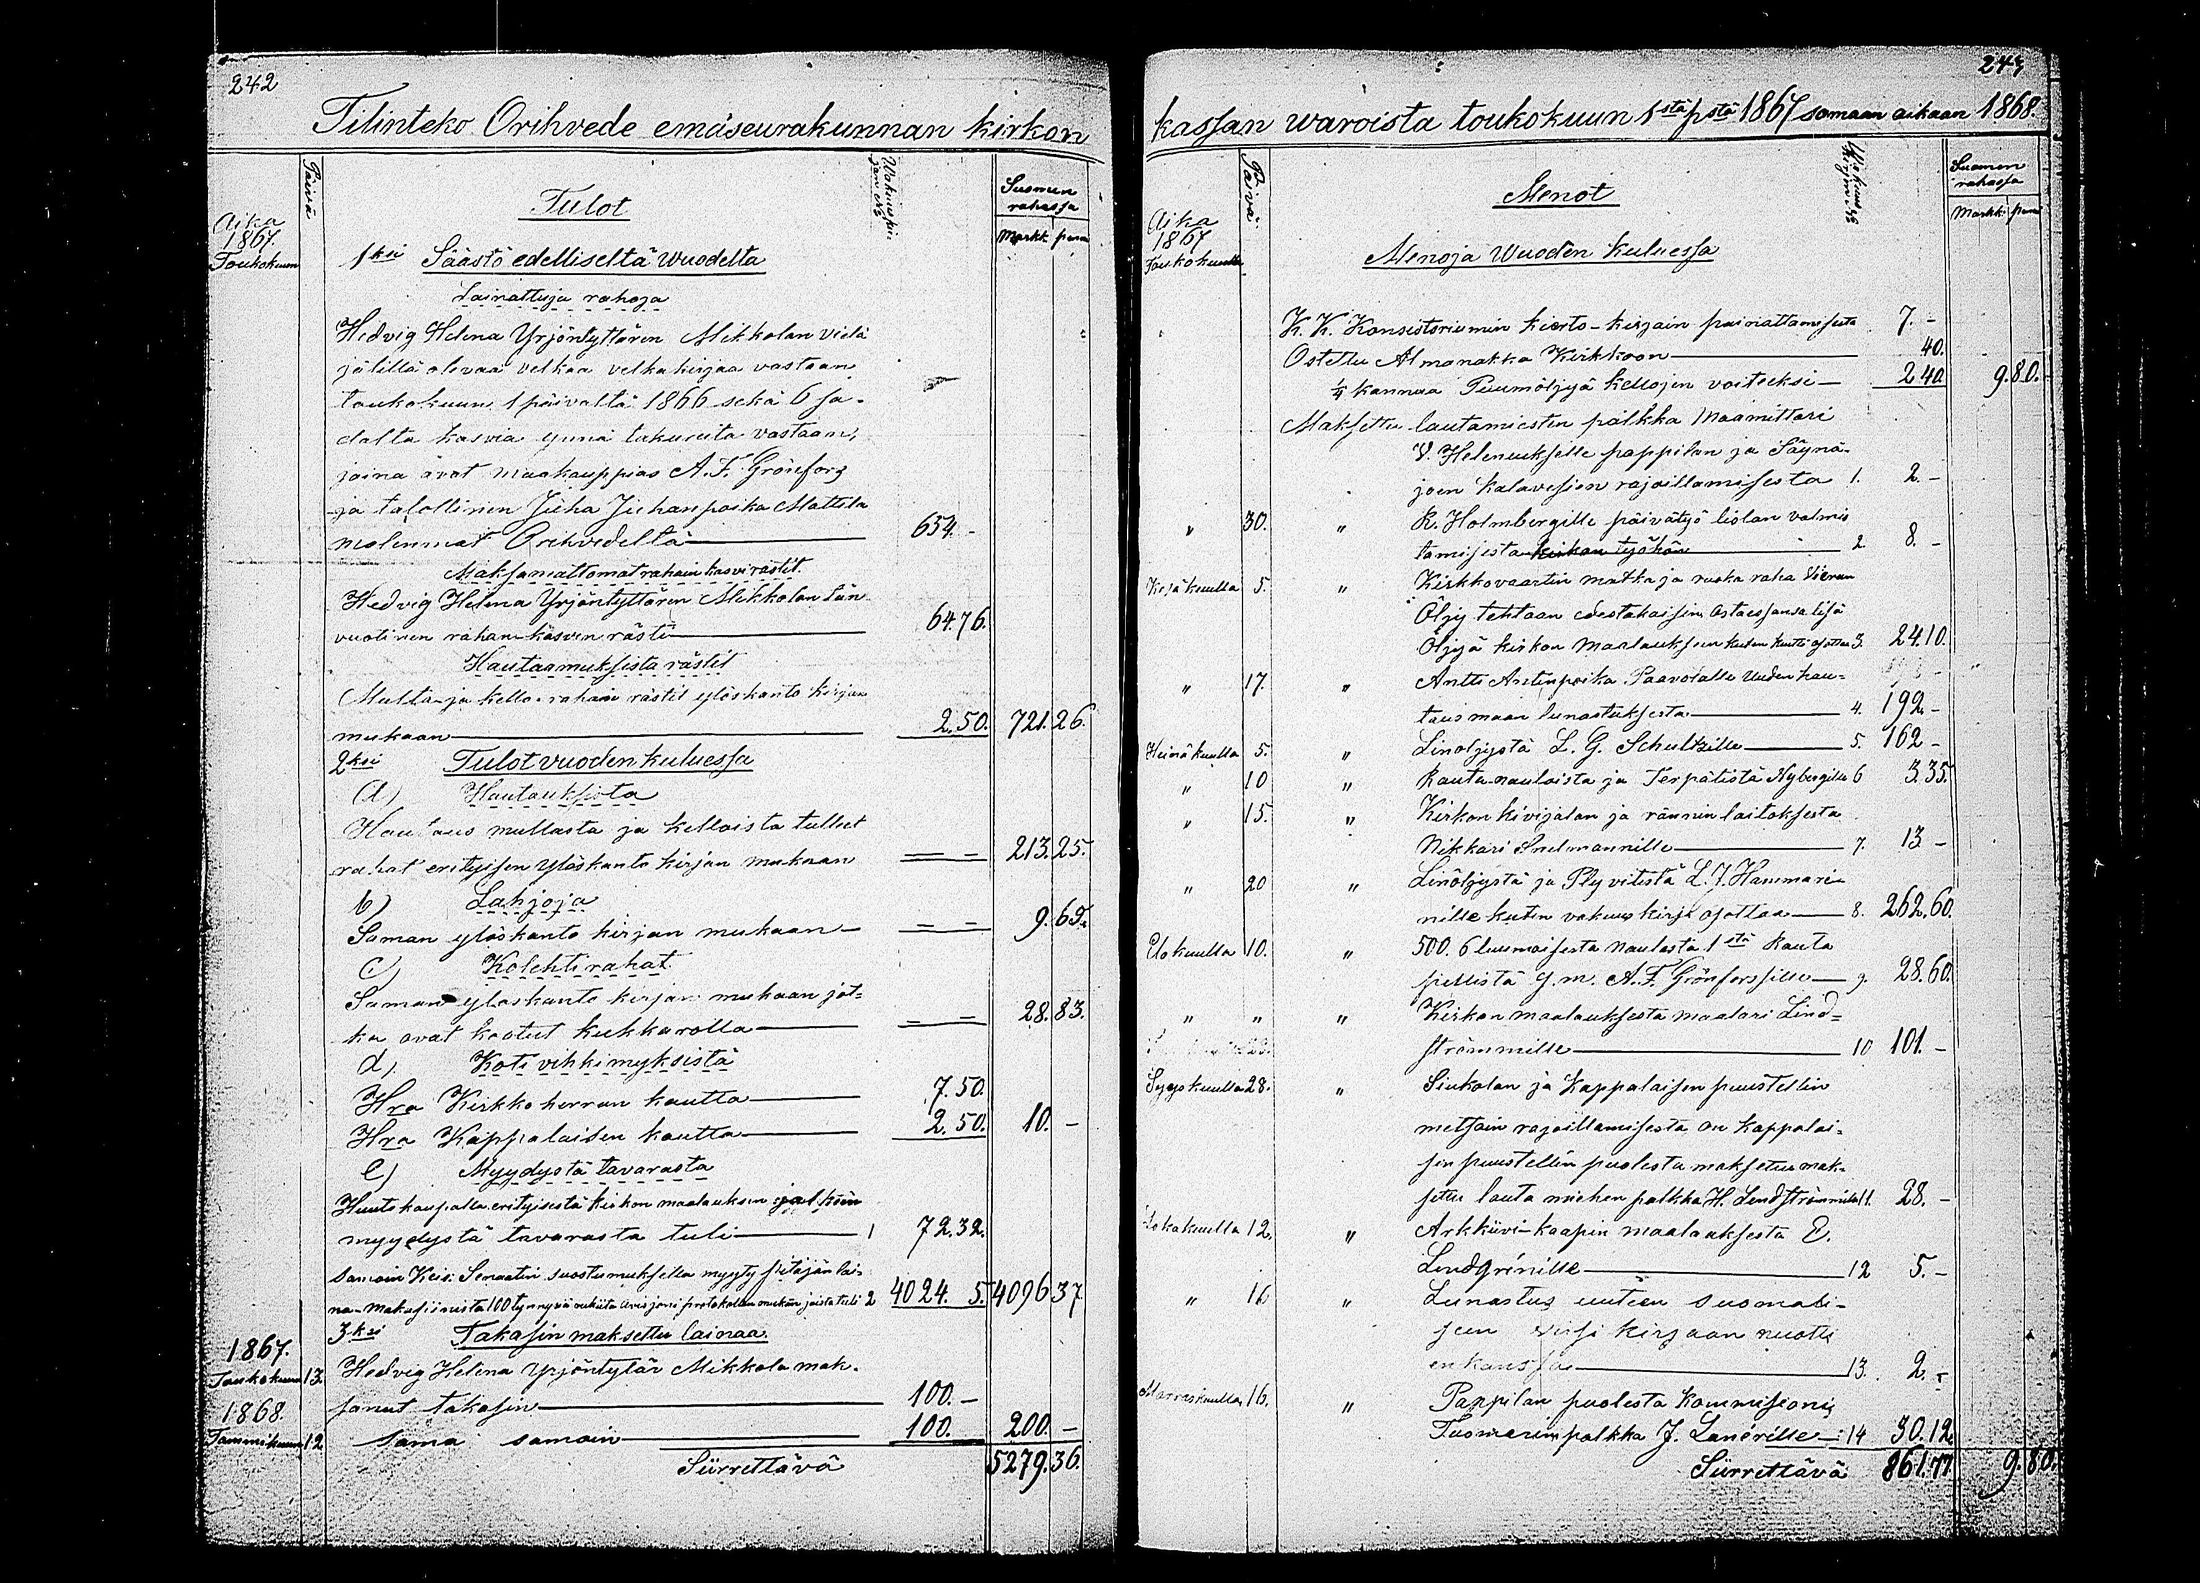 242
Tilinteko Orihvede emäseurakunnan kirkon
Päivä
Suomen
rahassa
Markk. penn
Tulot
Aika
1867.
Toukokuun
1ksi Säästö edelliseltä wuodelta
Lainattuja rahoja
Hedvig Helena Yrjöntyttären Mikkolan vielä
jälillä olevaa velkaa velkakirjaa vastaan
toukokuun 1 päivältä 1866 sekä 6 sa-
dalta kasvia ynnä takuuita vastaan,
joina ovat maakauppias A. F. Grönfors
ja talollinen Juha Juhanpoika Mattila
molemmat Orihvedeltä 654. -
Maksamattomat rahain kasvirästit.
Hedvig Helena Yrjöntyttären Mikkolan
vuotinen rahan-kasvun rästi 64.76.
Hautaamuksista rästit
Multa- ja kello-rahain rästit ylöskanto kirjan
mukaan 2.50. 721.26.
2ksi Tulot vuoden kuluessa
a) Hautauksista
Hautaus mullasta ja kelloista tulleet
rahat erityisen ylöskanto kirjan mukaan = = 213.25.
b) Lahjoja
Saman ylöskanto kirjan mukaan = = 9.65.
c) Kolehti rahat
Saman ylöskanto kirjan mukaan jot-
ka ovat kootut kukkarolla = = 28.83.
d) Koti vihkimyksistä
Hra Kirkkoherran kautta 7.50.
Hra Kappalaisen kautta 2.50. 10. -
e) Myydystä tavarasta
Huutokaupalla erityisestä kirkon maalauksen jälkeen
myydystä tavarasta tuli 1 72.32.
Samoin Keis: Senaatin suostumuksella myyty pitäjän lai-
na-makasiinista 100 tynnyriä protokollan mukaan joista tuli 2 4024. 5. 4096.37
3ksi Takasin maksettu lainaa.
1867.
Toukokuun 13. Hedvig Helena Yrjöntytär Mikkola mak-
sanut takasin 100. -
1868.
Tammikuun 12 Sama samoin 100. 200. -
Siirrettävä 5279.36.
243
kassan waroista toukokuun 1stä pstä 1867 samaan aikaan 1868.
Päivä
Suomen
rahassa
Markk. penn
Menot
Aika
1867
Toukokuulla
Menoja Wuoden kuluessa
K. K. Konsistoriumin kierto-kirjain 7. -
Ostettu Almanakka Kirkkoon 40.
1/4 kannua Puumöljyä kellojen voiteeksi 2 40 9.80.
Maksettu lautamiesten palkka Maamittari
V. Heleniukselle pappilan ja Säynä-
joen kalavesien rajoittamisesta 1. 2. -
" 30. " R. Holmbergille päivätyö listan valmis
tamisesta kirkon työhön 2 8. -
Kesäkuulla 5. " Kirkkovaartin matka ja ruoka raha Vieruun
Öljy tehtaan edestakaisin, ostaessansa lisä
Öljyä kirkon maalaukseen kuten kuitti osottaa 3. 24 10.
" 17. " Antti Antinpoika Paavolalle uuden hau-
tausmaan lunastuksesta 4. 192. -
Heinäkuulla 5. " Linöljystä L. G. Schultzille 5. 162 -
" 10 " Rauta-nauloista ja Terpätistä Nybergille 6 3.35.
" 15. " Kirkon kivijalan ja rännin laitoksesta
Nikkari Snelmannille 7. 13 -
" 20 " Linöljystä ja Plyvitistä L. J. Hammari-
nille kuten vakuus kirja osottaa 8. 262.60.
Elokuulla 10. " 500. 6 tuumaisesta naulasta 1stä Rauta
pellistä y.m. A. F. Grönforssille 9. 28.60.
" " " Kirkon maalauksesta maalari Lind-
strömmille 10 101. -
Syyskuulla 28. " Siukolan ja Kappalaisen puustellin
metsäin rajoittamisesta on kappalai-
sen puustellin puolesta maksettu mak-
settu lauta miehen palkka H. Lindströmmille 11. 28. -
Lokakuulla 12. " Arkkiivi-kaapin maalauksesta E.
Lindgrénille 12 5. -
" 16 " Lunastus uuteen suomali-
seen virsi kirjaan nuotti
en kanssa 13. 2. -
Marraskuulla 16. " Pappilan puolesta kommisioni
Tuomarin palkka J. Lanérille 14 30.12.
Siirrettävä 861.77 9.80.